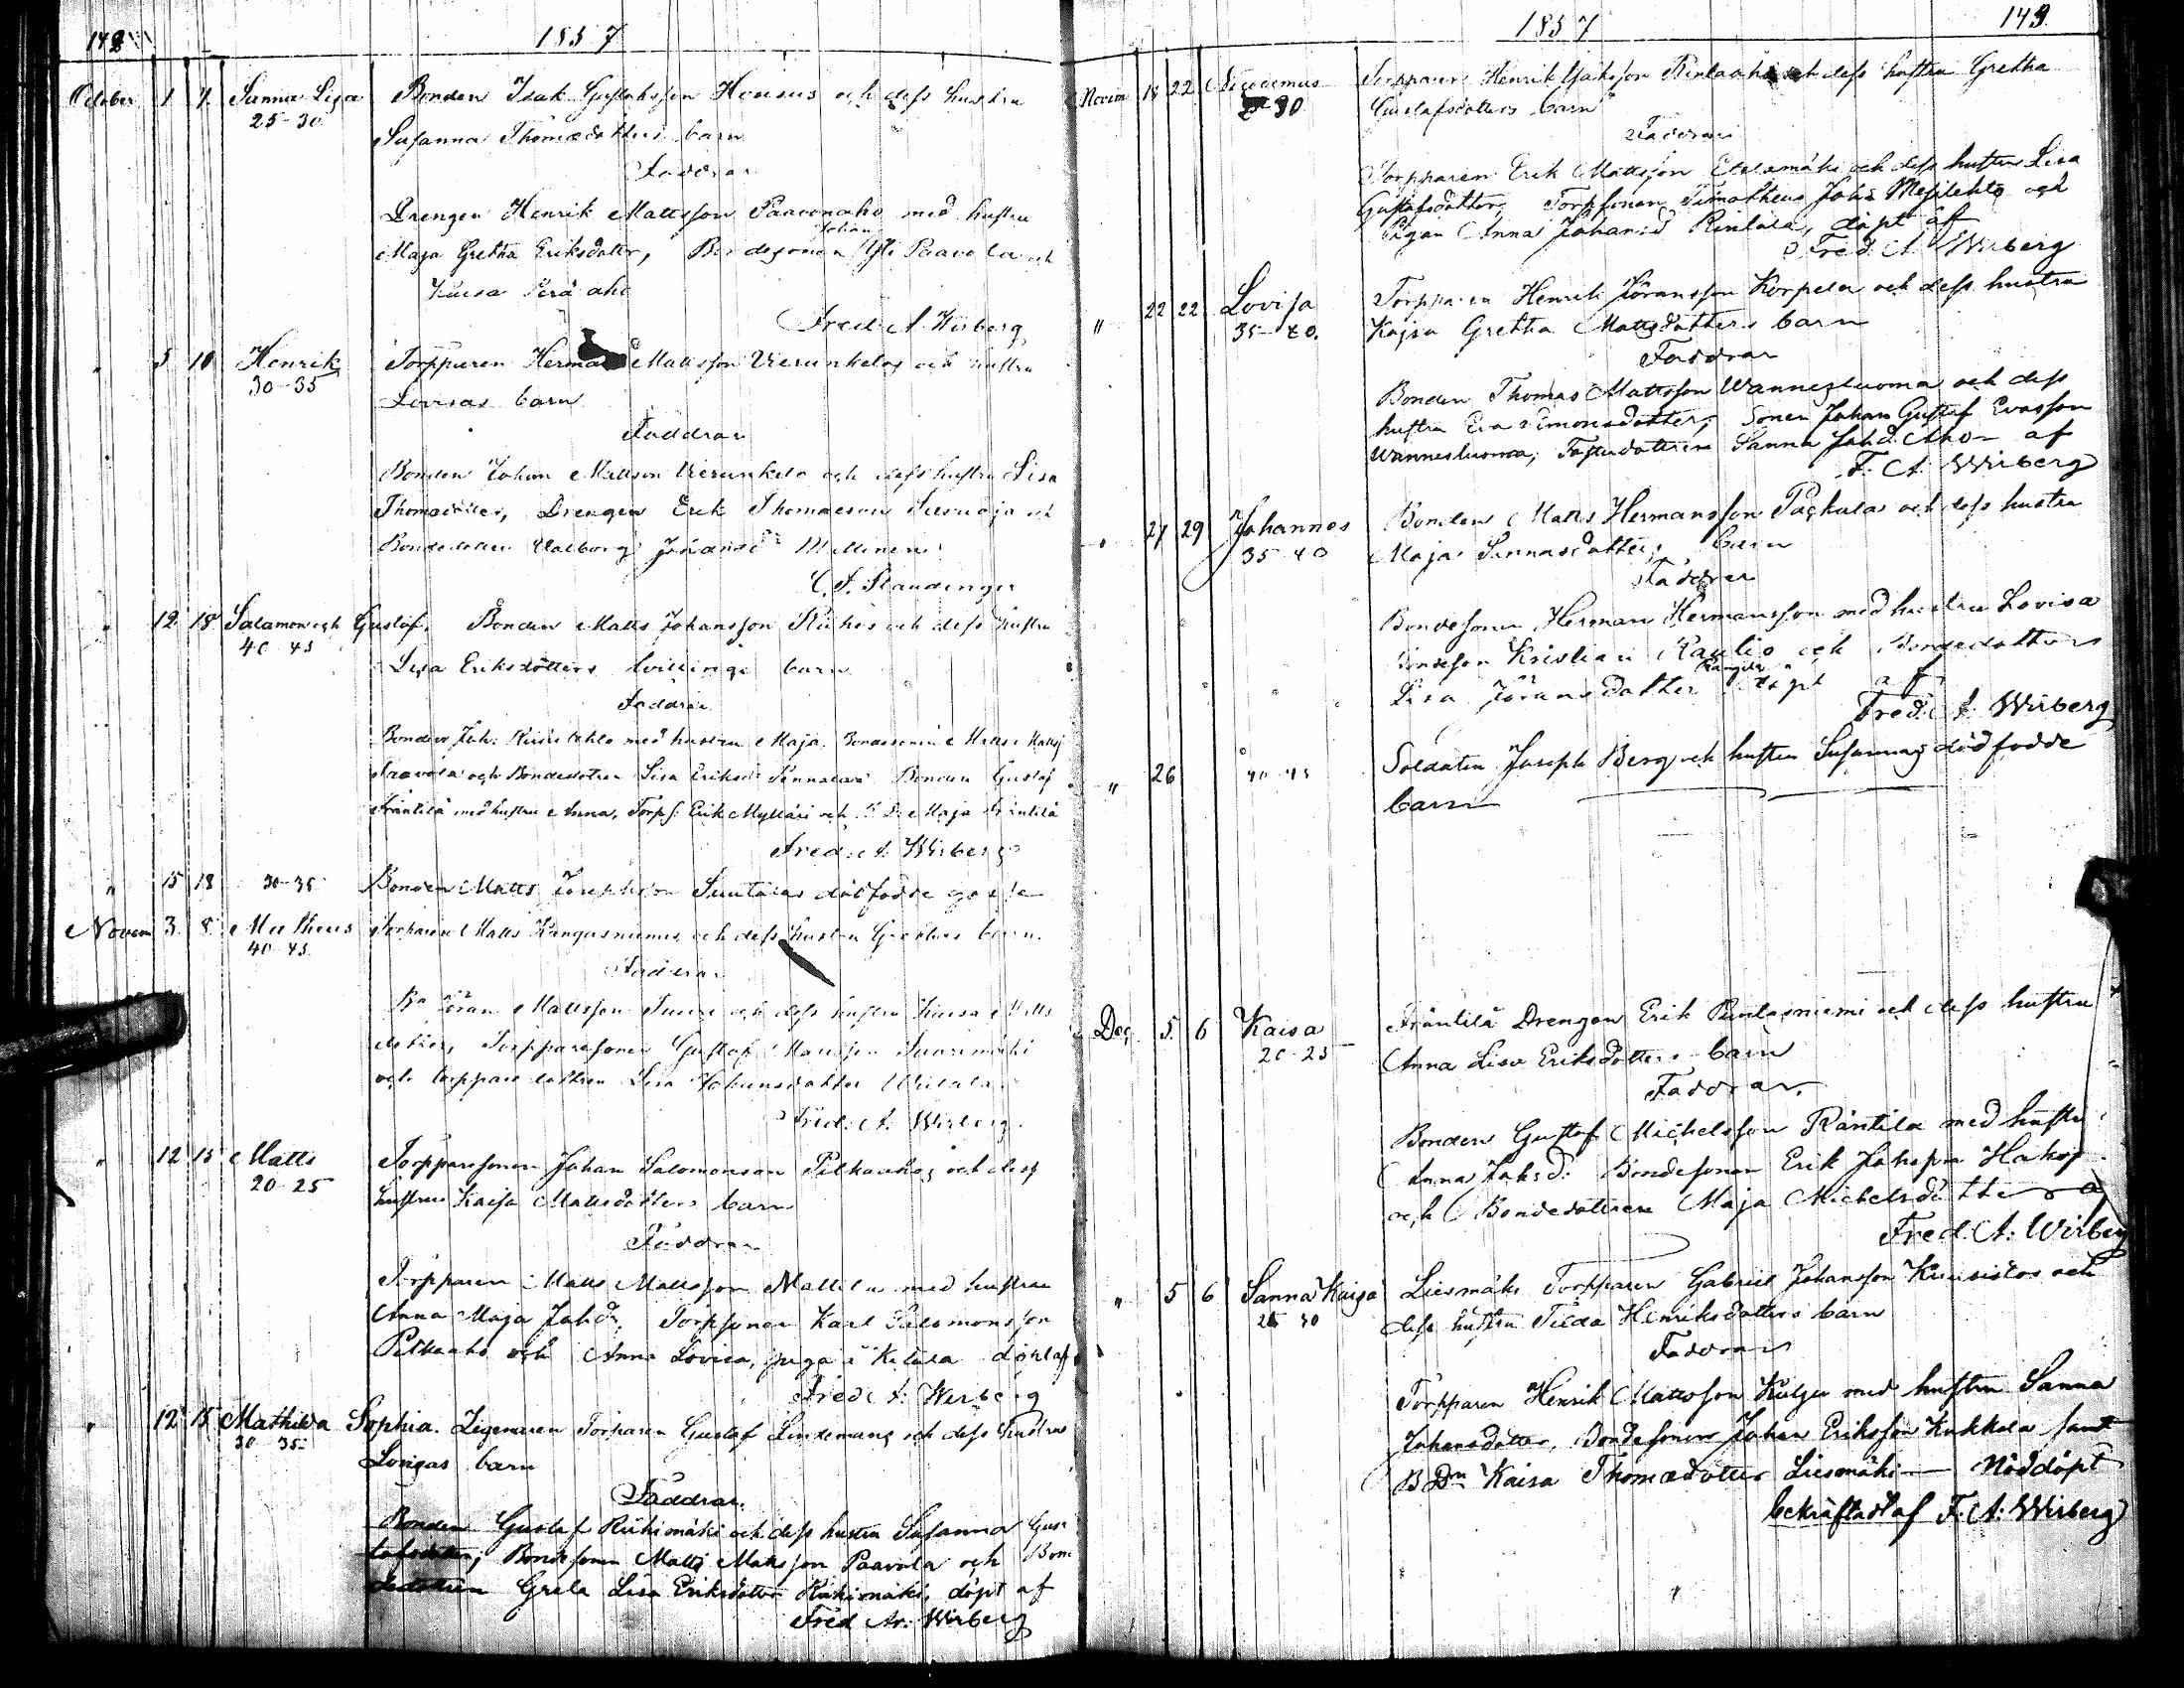 142
1857
October 1 4 Sanna Lisa Bonden Isak Gustafsson Housus och dess hustru
25-30
Susanna Thomædotters barn
Faddrar
Drengen Henrik Mattsson Paavonaho med hustru
Johan
Maja Gretha Eriksdotter, Bondesonen Yli Paavola och
Kaisa Perä aho
Fred. A. Wirberg
" 5 10 Henrik Torpparen Herman Mattsson Vierunkelas och hustru
30-35
Lovisas barn
Faddrar
Bonden Johan Mattsson Vierunkelo och dess hustru Lisa
Thomædotter, Drengen Erik Thomæson och
Bondedottren Valborg Johansd:
C. F. Staudinger
" 12 18 Salamon och Gustaf. Bonden Matts Johansson och dess hustru
40-45
Lisa Eriksdotters tvillinge barn
Faddrar
Bonden Joh: med hustru Maja, Bondesonen Matts Matts
Paavola och Bondedottren Lisa Eriksd: Bonden Gustaf
Räntilä med hustru Anna, Torps: Erik Mylläri och B. D. Maja Räntilä
Fred: A: Wirberg
" 15 18 30-35 Bonden Matts Josephsson dödfödde gosse
Novem 3 8 Matheus Torparen Matts Kangasniemis och dess hustru Grethas barn.
40-45
Faddrar
Bn Jöran Mattsson och dess hustru Kaisa Matts
dotter, Torpparesonen Gustaf Mattsson
och torpparedottren Lisa Johansdotter
Fred. A. Wirberg.
" 12 15 Matts Torpparesonen Johan Salomonson Pitkäahos och dess
20-25
hustrus Kaisa Mattsdotters barn
Faddrar
Torpparen Matts Mattsson Mattila med hustru
Anna Maja Johd., Torpsonen Karl Salomonsson
Pitkäaho och Anna Lovisa, piga i Ketola döpt af
Fred. A: Wirberg
" 12 15 Mathilda Sophia. Zigenaren Torparen Gustaf Lindemans och dess hustrus
30-35
Lovisas barn
Faddrar.
Bonden Gustaf Riihimäki och dess hustru Susanna Gus
tafsdotter, Bondesonen Matts Matsson Paavola och Bon
dedottren Greta Lisa Eriksdotter Riihimäki, döpt af
Fred Ar. Wirberg
1857
143.
Novem 18 22 Nicodemus Torpparen Henrik och dess hustru Gretha
30
Gustafsdotters barn
Faddrar
Torpparen Erik Mattsson Etelämäki och dess hustru Lisa
Gustafsdotter, Torpsonen Timotheus Johs Mesilehto och
Pigan Anna Johansd Rintala, döpt af
Fred. A. Wirberg
" 22 22 Lovisa Torpparen Henrik Jöransson Korpela och dess hustru
35-40.
Kajsa Gretha Mattsdotters barn
Faddrar
Bonden Thomas Mattsson Wannesluoma och dess
hustru Eva Simonsdotter, Sonen Johan Gustaf Evasson
Wannesluoma, Sanna Johd. Aho - af
F. A. Wirberg
" 27 29 Johannes Bonden Matts Hermansson och dess hustru
35-40
Maja Sannasdotters barn
Faddrar
Bondesonen Herman Hermansson med hustru Lovisa
Bondeson Kristian Rautio och Bondedottern
Lisa Jöransdotter döpt af
Fred. A. Wirberg
" 26 40-45 Soldaten Joseph Berg och hustru Susannas dödfödde
barn
Dec. 5 6 Kaisa Räntilä Drengen Erik och dess hustru
20-25
Anna Lisa Eriksdotters barn
Faddrar.
Bonden Gustaf Michelsson Räntilä med hustru
Anna Jaksd: Bondesonen Erik Jakobson Hakos
och Bondedottren Maja Michelsdotter af
Fred. A: Wirberg
" 5 6 Sanna Kaisa Liesmäki Torpparen Gabriel Johansson Kuusistos och
25 30
dess hustru Tilda Henriksdotters barn
Faddrar
Torpparen Henrik Mattsson med hustru Sanna
Johansdotter, Bondesonen Johan Eriksson Kukkola samt
B Dn Kaisa Thomædotter Liesmäki - Nöddöpt
bekräftadt af F. A: Wirberg